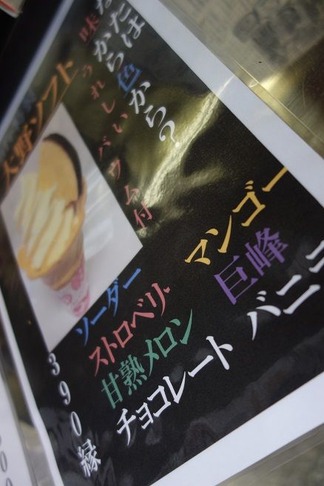 大野ソフト
なたは色から？
味からうれしいバウム付
マンゴー
巨峰
バニ
ソーダー
ストロベリー
甘熟メロン
チョコレート
390縁